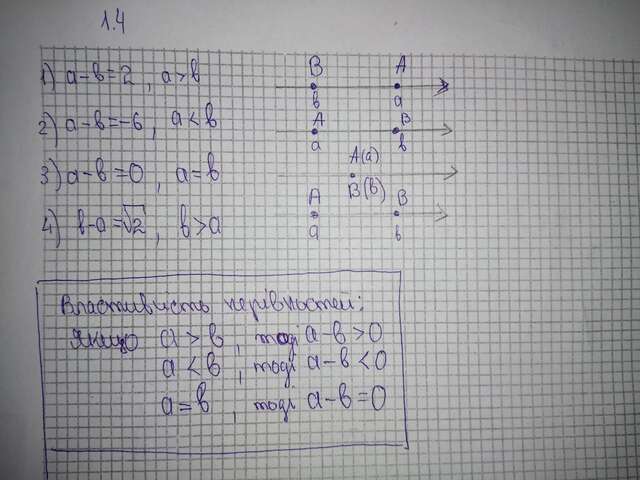 1.4
1) a-b=2, a>b B A
b a
2) a-b=-6, a<b A B
a b
3) a-b=0, a=b A(a)
B(b)
4) b-a=√2, b>a A B
a b
Властивість нерівностей:
Якщо a>b, тоді a-b>0
a<b, тоді a-b<0
a=b, тоді a-b=0